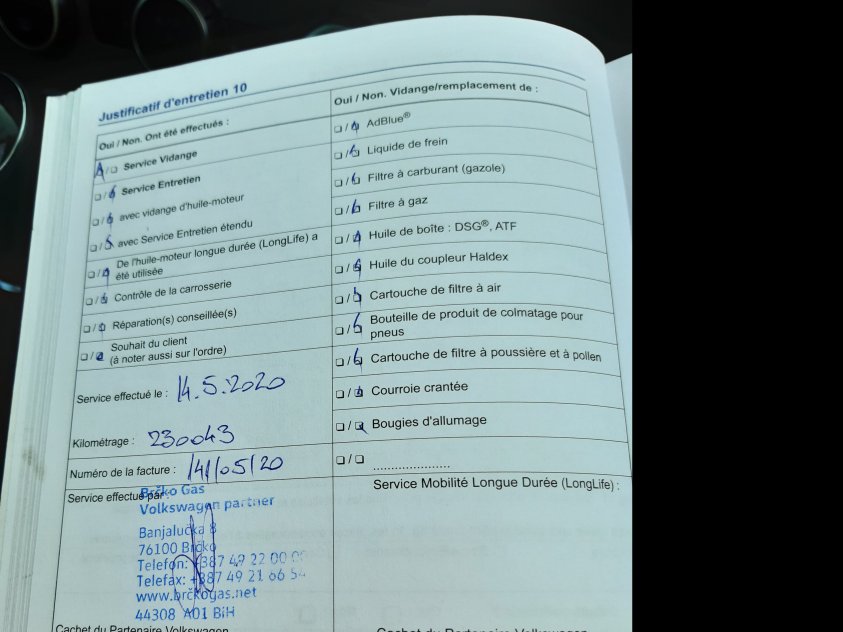 Justificatif d'entretien 10
Oui / Non. Ont été effectués :
❏/❏ Service Vidange
❏/❏ Service Entretien
❏/❏ avec vidange d'huile-moteur
❏/❏ avec Service Entretien étendu
❏/❏ De l'huile-moteur longue durée (LongLife) a
été utilisée
❏/❏ Contrôle de la carrosserie
❏/❏ Réparation(s) conseillée(s)
❏/❏ Souhait du client
(à noter aussi sur l'ordre)
Service effectué le : 14.5.2020
Kilométrage : 230043
Numéro de la facture : 141/05/20
Service effectué par :
Brčko Gas
Volkswagen partner
Banjalučka 8
76100 Brčko
Telefon: +387 49 22 00
Telefax: +387 49 21 66
www.brčkogas.net
44308 A01 BiH
Cachet du Partenaire Volkswagen
Oui / Non. Vidange/remplacement de :
❏/❏ AdBlue®
❏/❏ Liquide de frein
❏/❏ Filtre à carburant (gazole)
❏/❏ Filtre à gaz
❏/❏ Huile de boîte : DSG®, ATF
❏/❏ Huile du coupleur Haldex
❏/❏ Cartouche de filtre à air
❏/❏ Bouteille de produit de colmatage pour
pneus
❏/❏ Cartouche de filtre à poussière et à pollen
❏/❏ Courroie crantée
❏/❏ Bougies d'allumage
❏/❏ .....................
Service Mobilité Longue Durée (LongLife) :
Cachet du Partenaire Volkswagen